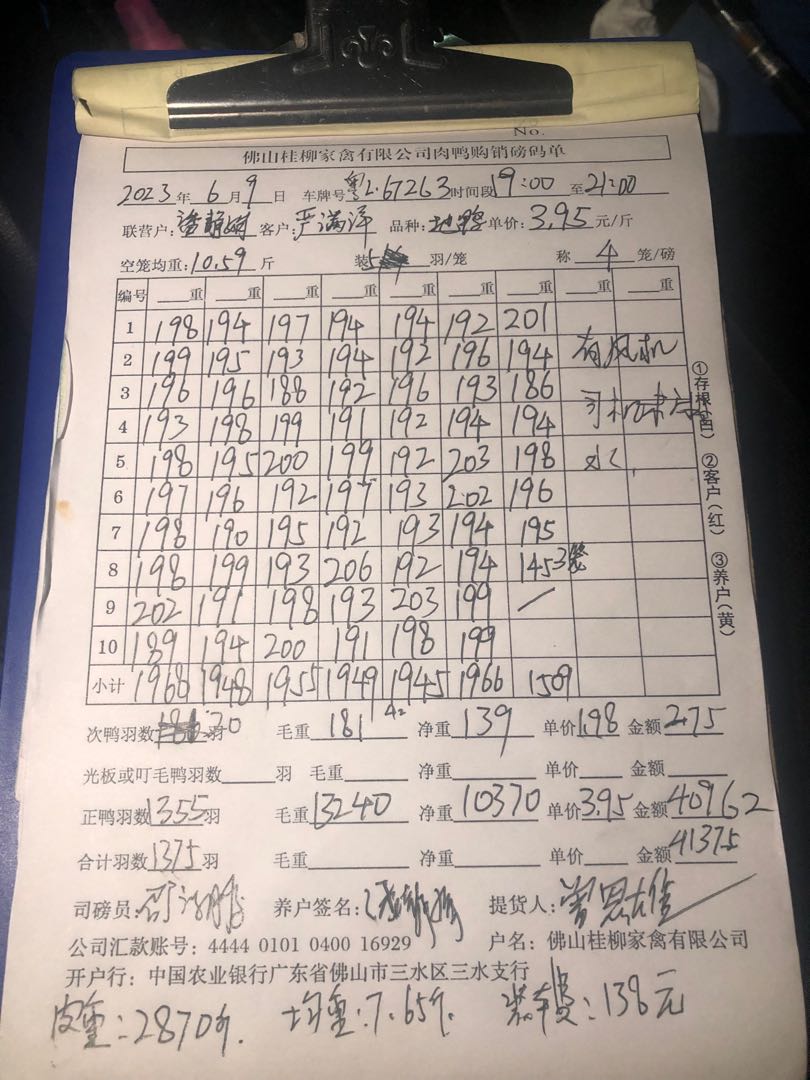 No.
佛山桂柳家禽有限公司肉鸭购销磅码单
2023年6月9日 车牌号粤L·67263时间段19:00至21:00
联营户: 客户:严满洋 品种: 单价:3.95元/斤
空笼均重:10.59斤 装 羽/笼 称4笼/磅
编号 重 重 重 重 重 重 重 重 重
1 198 194 197 194 194 192 201
2 199 195 193 194 192 196 194 有风机
3 196 196 188 192 196 193 186
4 193 198 199 191 192 194 194 司机
5 198 195 200 199 192 203 198 水
6 197 196 192 197 193 202 196
7 198 190 195 192 193 194 195
8 198 199 193 206 192 194 145 3笼
9 202 191 198 193 203 199 /
10 189 194 200 191 198 199
小计 1968 1948 1955 1949 1945 1966 1509
次鸭羽数20羽 毛重181 42 净重139 单价1.98 金额275
光板或叮毛鸭羽数 羽 毛重 净重 单价 金额
正鸭羽数1355羽 毛重13240 净重10370 单价3.95 金额40962
合计羽数1375羽 毛重 净重 单价 金额41375
司磅员: 养户签名: 提货人:
公司汇款账号:4444 0101 0400 16929 户名:佛山桂柳家禽有限公司
开户行:中国农业银行广东省佛山市三水区三水支行
皮重:2870斤. 均重:7.65斤. 装车费:138元
①存根(白) ②客户(红) ③养户(黄)